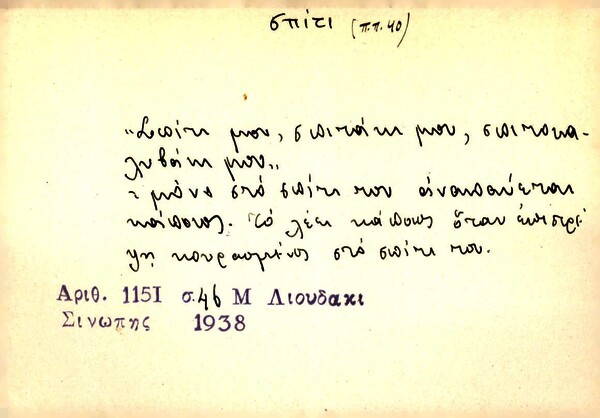 σπίτι (π.π. 40)
"Σπίτι μου, σπιτάκι μου, σπιτοκα-
λυβάκι μου"
: μόνο στό σπίτι του ἀναπαύεται
κάποιος. Τό λέει κάποιος ὅταν ἐπιστρέ
ψῃ κουρασμένος στό σπίτι του.
Αριθ. 1151 σ. 46 Μ Λιουδακι
Σινωπης 1938